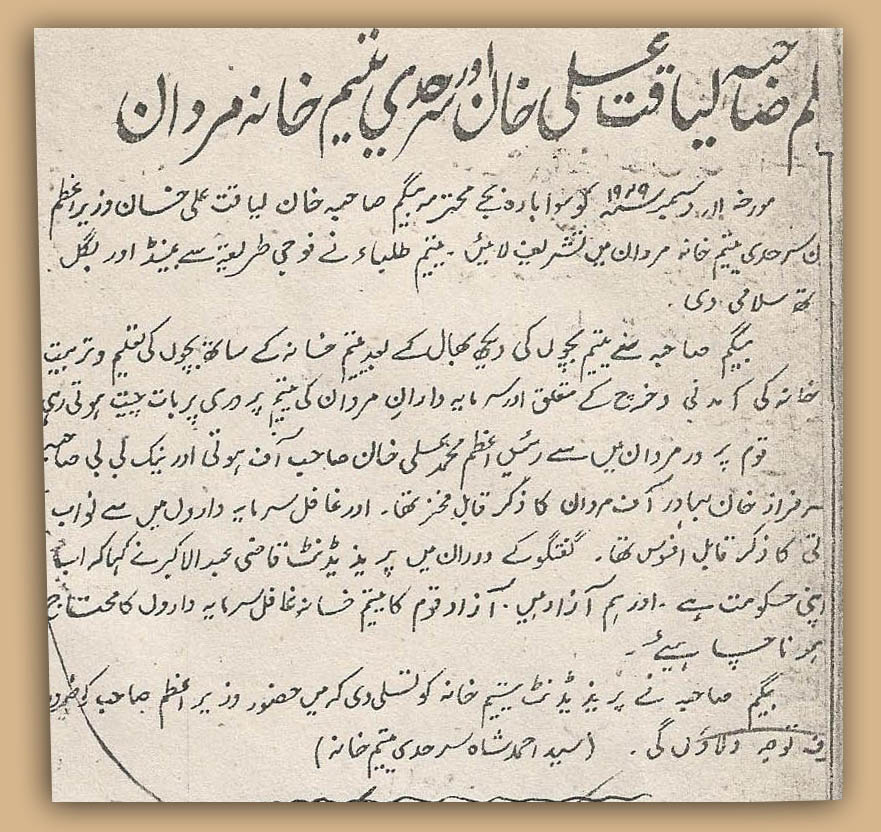 صاحبہ لیاقت علی خان اور سرحدی یتیم خانہ مردان
مورخہ ۱۱ر دسمبر ۱۹۴۹ء کو سوا بارہ بجے محترمہ بیگم صاحبہ خان لیاقت علی خان وزیر اعظم
ن سرحدی یتیم خانہ مردان میں تشریف لائیں ۔ یتیم طلباء نے فوجی طریقہ سے بینڈ اور بگل
تھ سلامی دی ۔
بیگم صاحبہ نے یتیم بچوں کی دیکھ بھال کے بعد یتیم خانہ کے ساتھ بچوں کی تعلیم و تربیت
خانہ کی آمدنی و خرچ کے متعلق اور سرمایہ داران مردان کی یتیم پروری پر بات چیت ہوتی رہی
قوم پرور مردان میں سے رئیس اعظم محمد علی خان صاحب آف ہوتی اور نیک بی بی صاحبہ
سرفراز خان بہادر آف مردان کا ذکر قابل فخر تھا ۔ اور غافل سرمایہ داروں میں سے نواب
تی کا ذکر قابل افسوس تھا ۔ گفتگو کے دوران میں پریذیڈنٹ قاضی عبدالاکبر نے کہا کہ اب
اپنی حکومت ہے ۔ اور ہم آزاد ہیں ۔ آزاد قوم کا یتیم خانہ غافل سرمایہ داروں کا محتاج
ہونا چاہیئے ۔
بیگم صاحبہ نے پریذیڈنٹ یتیم خانہ کو تسلی دی کہ میں حضور وزیر اعظم صاحب کو ضرور
توجہ دلاؤں گی ۔ (سید احمد شاہ سرحدی یتیم خانہ)